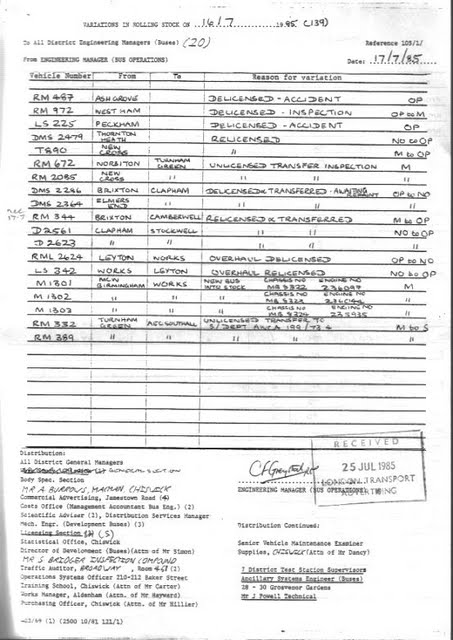 VARIATIONS IN ROLLING STOCK ON 16/7 1985 (139)
To All District Engineering Managers (Buses) (20) Reference 103/1/
From ENGINEERING MANAGER (BUS OPERATIONS) Date: 17/7/85
Vehicle Number From To Reason for variation
RM 487 ASH GROVE DELICENSED - ACCIDENT OP
RM 972 WEST HAM DELICENSED - INSPECTION OP to M
LS 225 PECKHAM DELICENSED - ACCIDENT OP
DMS 2479 THORNTON HEATH RELICENSED NO to OP
T890 NEW CROSS " M to OP
RM 672 NORBITON TURNHAM GREEN UNLICENSED TRANSFER INSPECTION M
RM 2085 NEW CROSS " " "
DMS 2286 BRIXTON CLAPHAM DELICENSED & TRANSFERRED - AWAITING OP to NO
DMS 2364 ELMERS END " " "
17-7 RM 344 BRIXTON CAMBERWELL RELICENSED & TRANSFERRED M to OP
D 2561 CLAPHAM STOCKWELL " NO to OP
D 2623 " " " "
RML 2624 LEYTON WORKS OVERHAUL DELICENSED OP to NO
LS 342 WORKS LEYTON OVERHAUL RELICENSED NO to OP
M 1301 MCW BIRMINGHAM WORKS NEW BUS INTO STOCK CHASSIS NO MB 9322 ENGINE NO 236097 M
M 1302 " " " CHASSIS NO MB 9323 ENGINE NO "
M 1303 " " " CHASSIS NO MB 9324 ENGINE NO 235935 "
RM 332 TURNHAM GREEN AEC SOUTHALL UNLICENSED TRANSFER TO S/DEPT M to S
RM 389 " " " " "
Distribution:
All District General Managers
Body Spec. Section
MR A BURROWS, CHISWICK
Commercial Advertising, Jamestown Road
Costs Office (Management Accountant Bus Eng.) (2)
Scientific Adviser (2), Distribution Services Manager
Mech. Engr. (Development Buses) (3)
Licensing Section (5)
Statistical Office, Chiswick
Director of Development (Buses)(Attn of Mr Simon)
MR S BRIDGER INSPECTION COMPOUND
Traffic Auditor, BROADWAY, ROOM
Operations Systems Officer 210-212 Baker Street
Training School, Chiswick (Attn of Mr Carter)
Works Manager, Aldenham (Attn. of Mr Hayward)
Purchasing Officer, Chiswick (Attn of Mr Hillier)
ENGINEERING MANAGER (BUS OPERATIONS)
RECEIVED
25 JUL 1985
LONDON TRANSPORT
ADVERTISING
Distribution Continued:
Senior Vehicle Maintenance Examiner
Supplies, CHISWICK (Attn of Mr Dancy)
7 District Test Station Supervisors
Ancillary Systems Engineer (Buses)
28 - 30 Grosvenor Gardens
Mr J Powell Technical
(1) (2500 10/81 121/1)